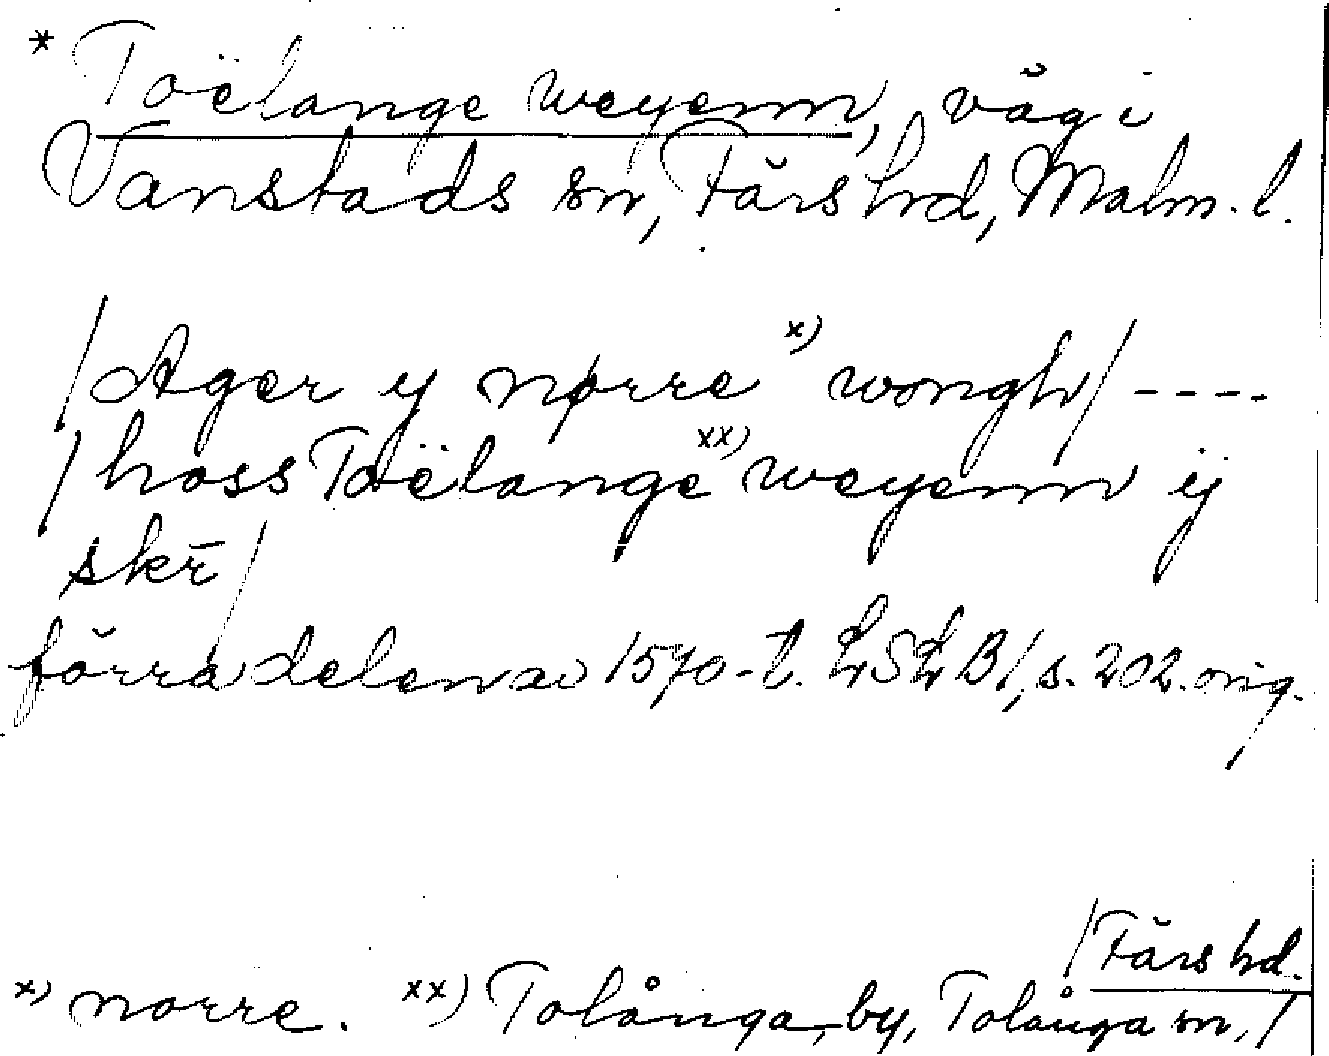 * Toëlange weyenn, väg i
Vanstads sn, Färs hrd, Malm. l.
/Ager y nørre x) wongh/ ----
/hoss Toëlange xx) weyenn ÿ
skr̄/
förra delen av 1570-t. LSLB1, s. 202. orig.
/Färs hd.
x) norre. xx) Tolånga, by, Tolånga sn,/